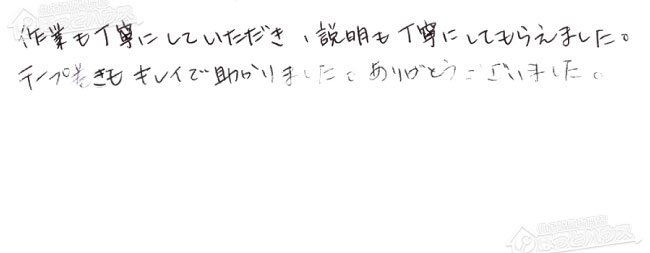 作業も丁寧にしていただき、説明も丁寧にしてもらえました。
テープ巻きもキレイで助かりました。ありがとうございました。